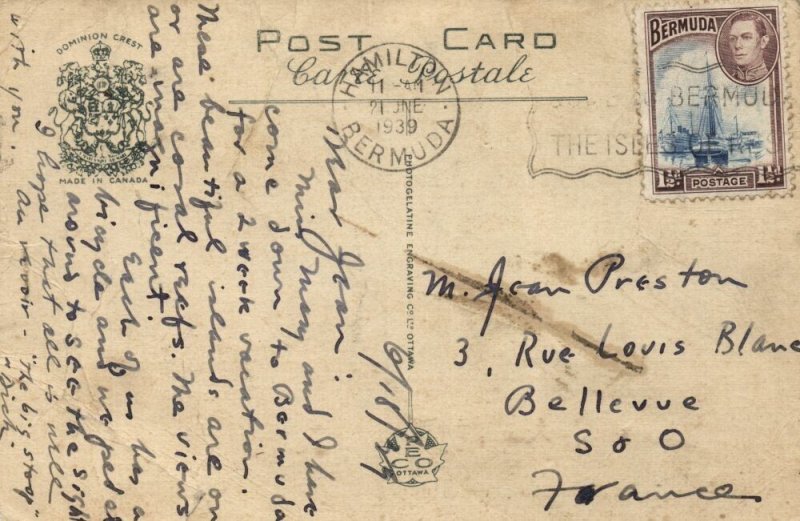 DOMINION CREST
MADE IN CANADA
POST CARD
Carte Postale
HAMILTON
11 AM
21 JNE
1939
BERMUDA
BERMUDA
THE ISLES OF
BERMUDA
1½d
POSTAGE
1½d
PHOTOGELATINE ENGRAVING CO. LTD. OTTAWA
PECO
OTTAWA
6/18/39
Dear Jean,
Miss May and I have
come down to Bermuda
for a 2 week vacation.
These beautiful islands are on
or are coral reefs. The views
are magnificent!
Each of us has a
bicycle and we pedal
around to see the sights
I hope that all is well
with you.
Au revoir - "The big stoop"
"Dick"
M. Jean Preston
3, Rue Louis Blanc
Bellevue
S & O
France